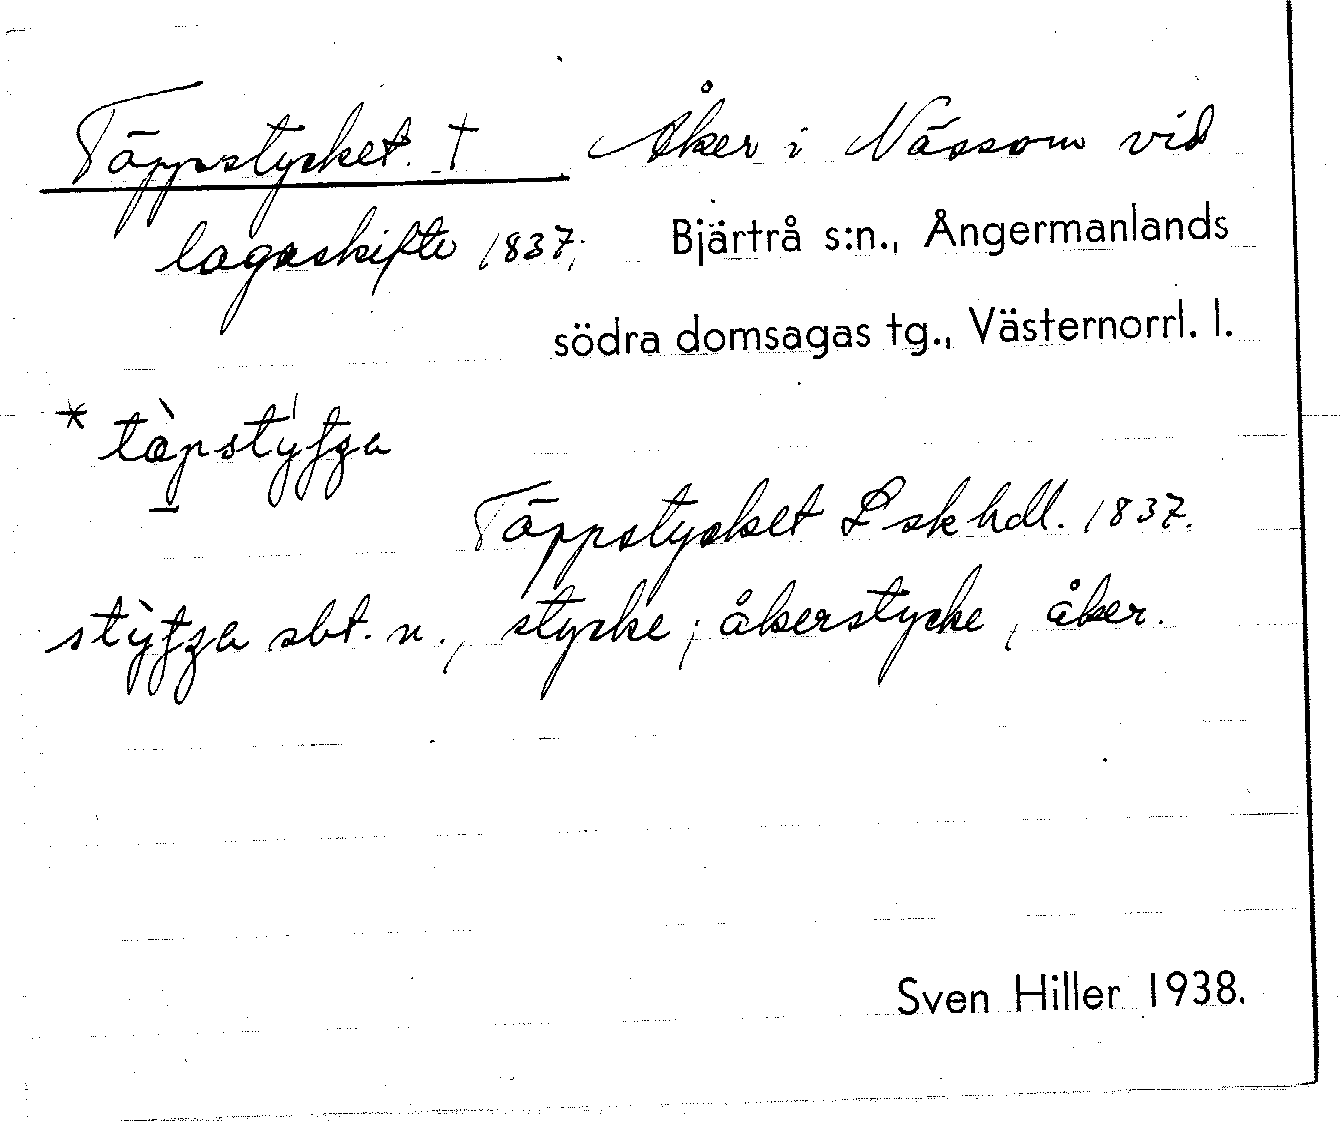 Täppstycket. † Åker i Nässom vid
lagaskifte 1837; Bjärtrå s:n., Ångermanlands
södra domsagas tg., Västernorrl. l.
Täppstycket L sk hdl. 1837.
sbt. n., stycke; åkerstycke, åker.
Sven Hiller 1938.